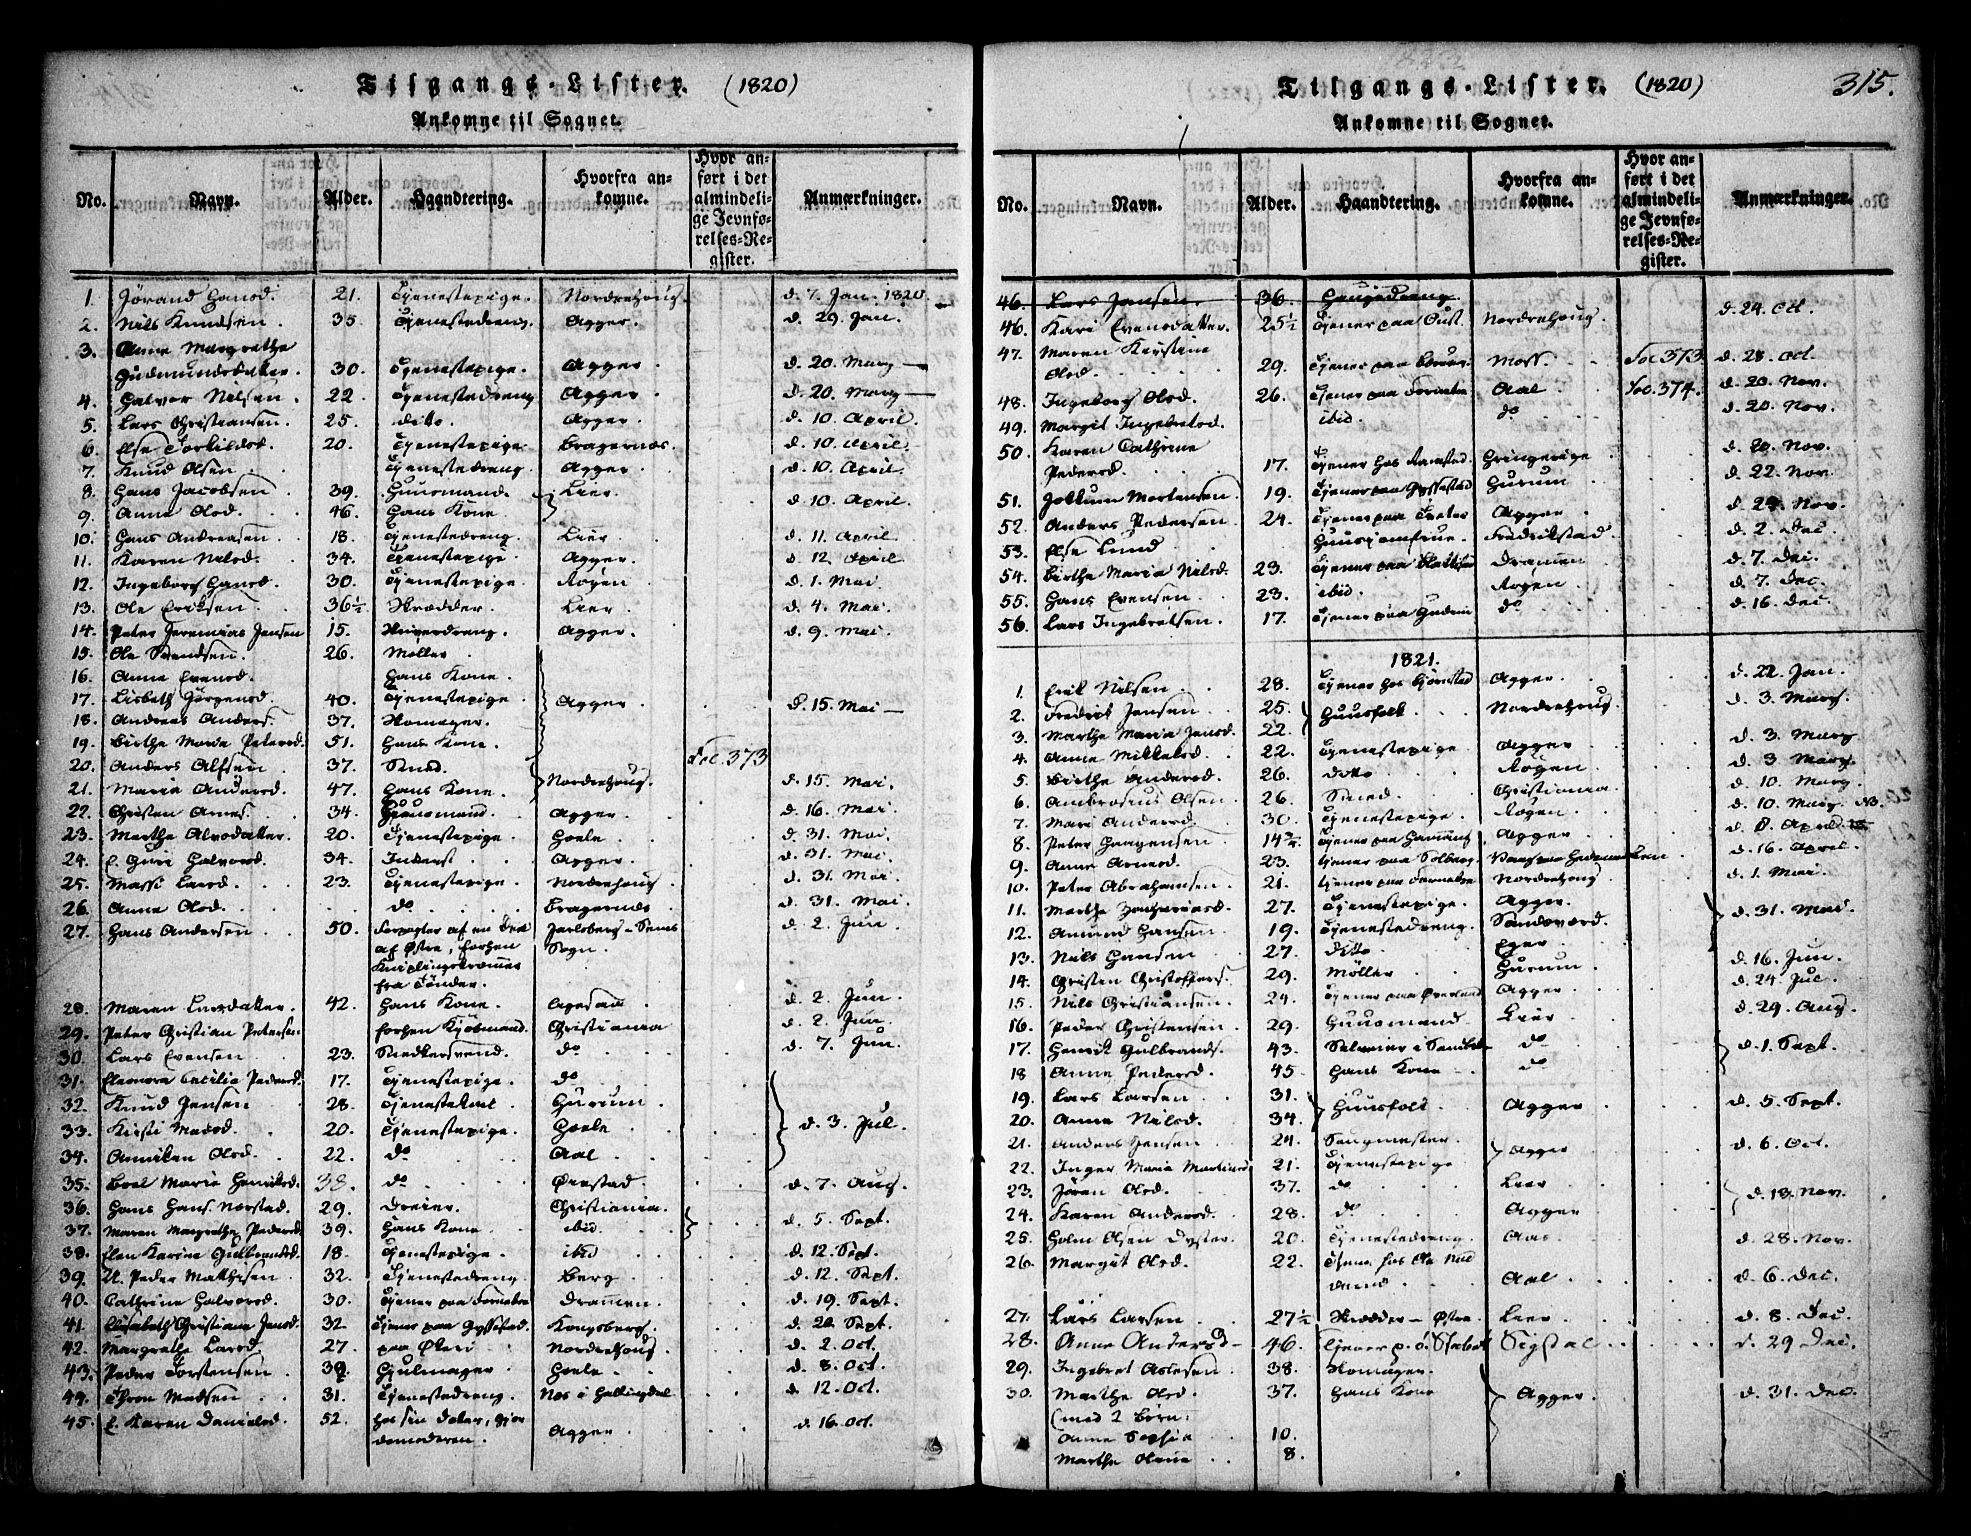 Tilgangs-Lister. (1820)
Ankomne til Sognet.
No. Navn. Alder. Haandtering. Hvorfra ankomne. Hvor anført i det almindelige Jevnførelses-Register. Anmærkninger.
1. Jørand Hansd. 21. Tjenestepige. Nordrehoug. d. 7. Jan. 1820.
2. Nils Knudsen. 35. Tjenestedreng. Agger. d. 29. Jan.
3. Anne Margrethe
Gudmundsdatter. 30. Tjenestepige. Agger. d. 20. Marz
4. Halvor Nilsen. 22. Tjenestedreng Agger. d. 20. Marz
5. Lars Christiansen. 25. ditto. Agger. d. 10. April.
6. Else Torkildsd. 20. Tjenestepige. Bragernæs. d. 10. April.
7. Knud Olsen Tjenestedreng. Agger. d. 10. April.
8. Hans Jacobsen 39. Huusmand. Lier. d. 10. April.
9. Anne Olsd. 46. Hans Kone.
10. Hans Andreasen 18. Tjenestedreng. Lier. d. 11. April
11. Karen Nilsd. 34. Tjenestepige Agger. d. 12. April
12. Ingeborg Hansd. 30. Tjenestepige. Røgen d. 1. Mai
13. Ole Eriksen 36½ Skrædder. Lier. d. 4. Mai.
14. Peter Jeremias Jensen 15. Agger. d. 9. Mai.
15. Ole Svendsen. 26. Møller.
16. Anne Evensd. Hans Kone.
17. Lisbeth Jørgensd. 40. Tjenestepige. Agger. d. 15. Mai
18. Andreas Anders. 37. Skomager.
19. Birthe Marie Petersd. 51. Hans Kone. Soc. 373
20. Anders Alfsen 37. Smed. Nordrehoug. d. 15. Mai.
21. Maria Andersd. 47. Hans Kone.
22. Christen Arnes. 34. Huusmand. Agger. d. 16. Mai.
23. Marthe Alvsdatter. 20. Tjenestepige. Hoele. d. 31. Mai.
24. E. Guri Halvorsd. 34. Inderst Agger. d. 31. Mai.
25. Massi Larsd. 23. Tjenestepige. Nordrehoug d. 31. Mai.
26. Anne Olsd. do Bragernæs. d. 31. Mai.
27. Hans Andersen 50. Forpagter af en Deel Jarlsberg - Sems d. 2. Jun.
af Østre, forhen Sogn.
Kniplingskræmmer
fra Tønder.
28. Maren Larsdatter. 42. Hans Kone. d. 2. Jun.
29. Peter Christian Petersen. forhen Kjøbmand. Christiania d. 2. Jun.
30. Lars Evensen 23. Snedkersvend. do d. 7. Jun.
31. Eleonora Cecilia Pedersd. 17. Tjenestepige. do
32. Knud Jensen 28. Tjenestekarl Hurum.
33. Kirsti Madsd. 20. Tjenestepige. Hoele. d. 3. Jul.
34. Anniken Olsd. 22. do Aal
35. Boel Marie Henriksd. 38. do d. 7. Aug.
36. Hans Hans. Norstad. 29. Dreier. Christiania. d. 5. Sept.
37. Maren Margrethe Pedersd. 39. Hans Kone ibid.
38. Elen Karine Gulbrandsd. 18. Tjenestepige. ibid d. 12. Sept.
39. U. Peder Mathisen 32. Tjenestedreng. Berg. d. 12. Sept.
40. Cathrine Halvorsd. 30. Tjener paa Fornebo Drammen. d. 19. Sept.
41. Elisabeth Christiane Jensd. 32. Tjener paa Gyssestad. Kongsberg. d. 20. Sept.
42. Margrethe Larsd. 27. paa Øveri Nordrehoug. d. 2. Oct.
43. Peder Torstensen. 39. Hjulmager. Hoele. d. 8. Oct.
44. Thron Madsen 31. Tjenestedreng. Næs i Hallingdal d. 12. Oct.
45. E. Karen Danielsd. 52. hos sin Datter, Gjor
demoderen. Agger. d. 16. Oct.
Tilgangs-Lister. (1820) 315.
Ankomne til Sognet.
No. Navn. Alder. Haandtering. Hvorfra ankomne. Hvor anført i det almindelige Jevnførelses-Register. Anmærkninger.
46. Lars Jansen. 36.
46. Kari Evensdatter. 25½ Tjener paa Nordrehoug. d. 24. Oct.
47. Maren Kirstine
Olsd. 29. Tjener paa Moss. Soc. 373 d. 28. Oct.
48. Ingeborg Olsd. 26. Tjener paa Fornebo Aal Soc. 374. d. 20. Nov.
49. Margit Ingebretsd. ibid. do d. 20. Nov.
50. Karen Cathrine
Pedersd. 17. Tjener hos Ramstad. Hringerige d. 20. Nov.
51. Jottum Mortensen. 19. Tjener paa Gyssestad Hurum d. 22. Nov.
52. Anders Pedersen 24. Tjener paa Agger d. 29. Nov.
53. Else Lund Huusjomfrue. Fredrikstad. d. 2. Dec.
54. Birthe Maria Nilsd. 23. Tjener paa Drammen d. 7. Dec.
55. Hans Evensen 23. ibid. Røgen d. 7. Dec.
56. Lars Ingebretsen. 17. Tjener paa do d. 16. Dec.
1821.
1. Erik Nilsen 28. Tjener hos Bjørnstad Agger. d. 22. Jan.
2. Fredrik Jensen 25. Huusfolk Nordrehoug. d. 3. Marz.
3. Marthe Maria Jensd. 22.
4. Anne Mikkelsd. 22. Tjenestepige. Agger d. 3. Marz
5. Birthe Andersd. 26. ditto Røgen. d. 3. Marz.
6. Ambrosius Olsen 26. Smed. Christiania d. 10. Marz
7. Mari Andersd. 30. Tjenestepige. Røgen. d. 10. Marz. NB.
8. Peter Haagensen 14¾ Tjener paa Agger d. 8. April
9. Anne Arnesd. 23. tjener paa Solberg. d. 16. April.
10. Peter Abrahamsen 21. tjener paa Fornebo Nordrehoug d. 1. Mai.
11. Marthe Zachariasd. 27. Tjenestepige. Agger. d. 31. Mai.
12. Amund Hansen 19. Tjenestedreng. Sandsværd.
13. Nils Hansen 27. ditto Eger d. 16. Jun.
14. Christen Christoffers. 29. Møller Hurum. d. 24. Jul.
15. Nils Christiansen. 24. Tjener paa Øverland Agger d. 29. Aug.
16. Peder Christensen 29. Huusmand. Lier
17. Henrik Gulbrands. 43. do d. 1. Sept.
18 Anne Pedersd. 45 Hans Kone do
19. Lars Larsen 31. Huusfolk. Agger d. 5. Sept.
20. Anne Nilsd. 34.
21. Anders Jensen 24. Saugmester. Agger d. 6. Oct.
22. Inger Maria Martinsd 21. Tjenestepige
23. Jøren Olsd. 37. do Lier d. 13. Nov.
24. Karen Andersd. 28. do Agger
25. Holm Olsen Dyster. 20. Tjenestedreng. Aas. d. 28. Nov.
26. Margit Olsd. 22. Tjener hos Ole Aal d. 6. Dec.
27. Lars Larsen 27½ Skrædder - Østre. Lier. d. 8. Dec.
28. Anne Andersd 46. Tjener p. ø. Stabek Sigdal d. 29 Dec.
29. Ingebret Aslesen 38. Skomager.
30. Marthe Olsd. 37. Hans Kone Agger. d. 31. Dec.
(med 2 Børn:
Anne Sophie 10.
Marthe Oline 8.